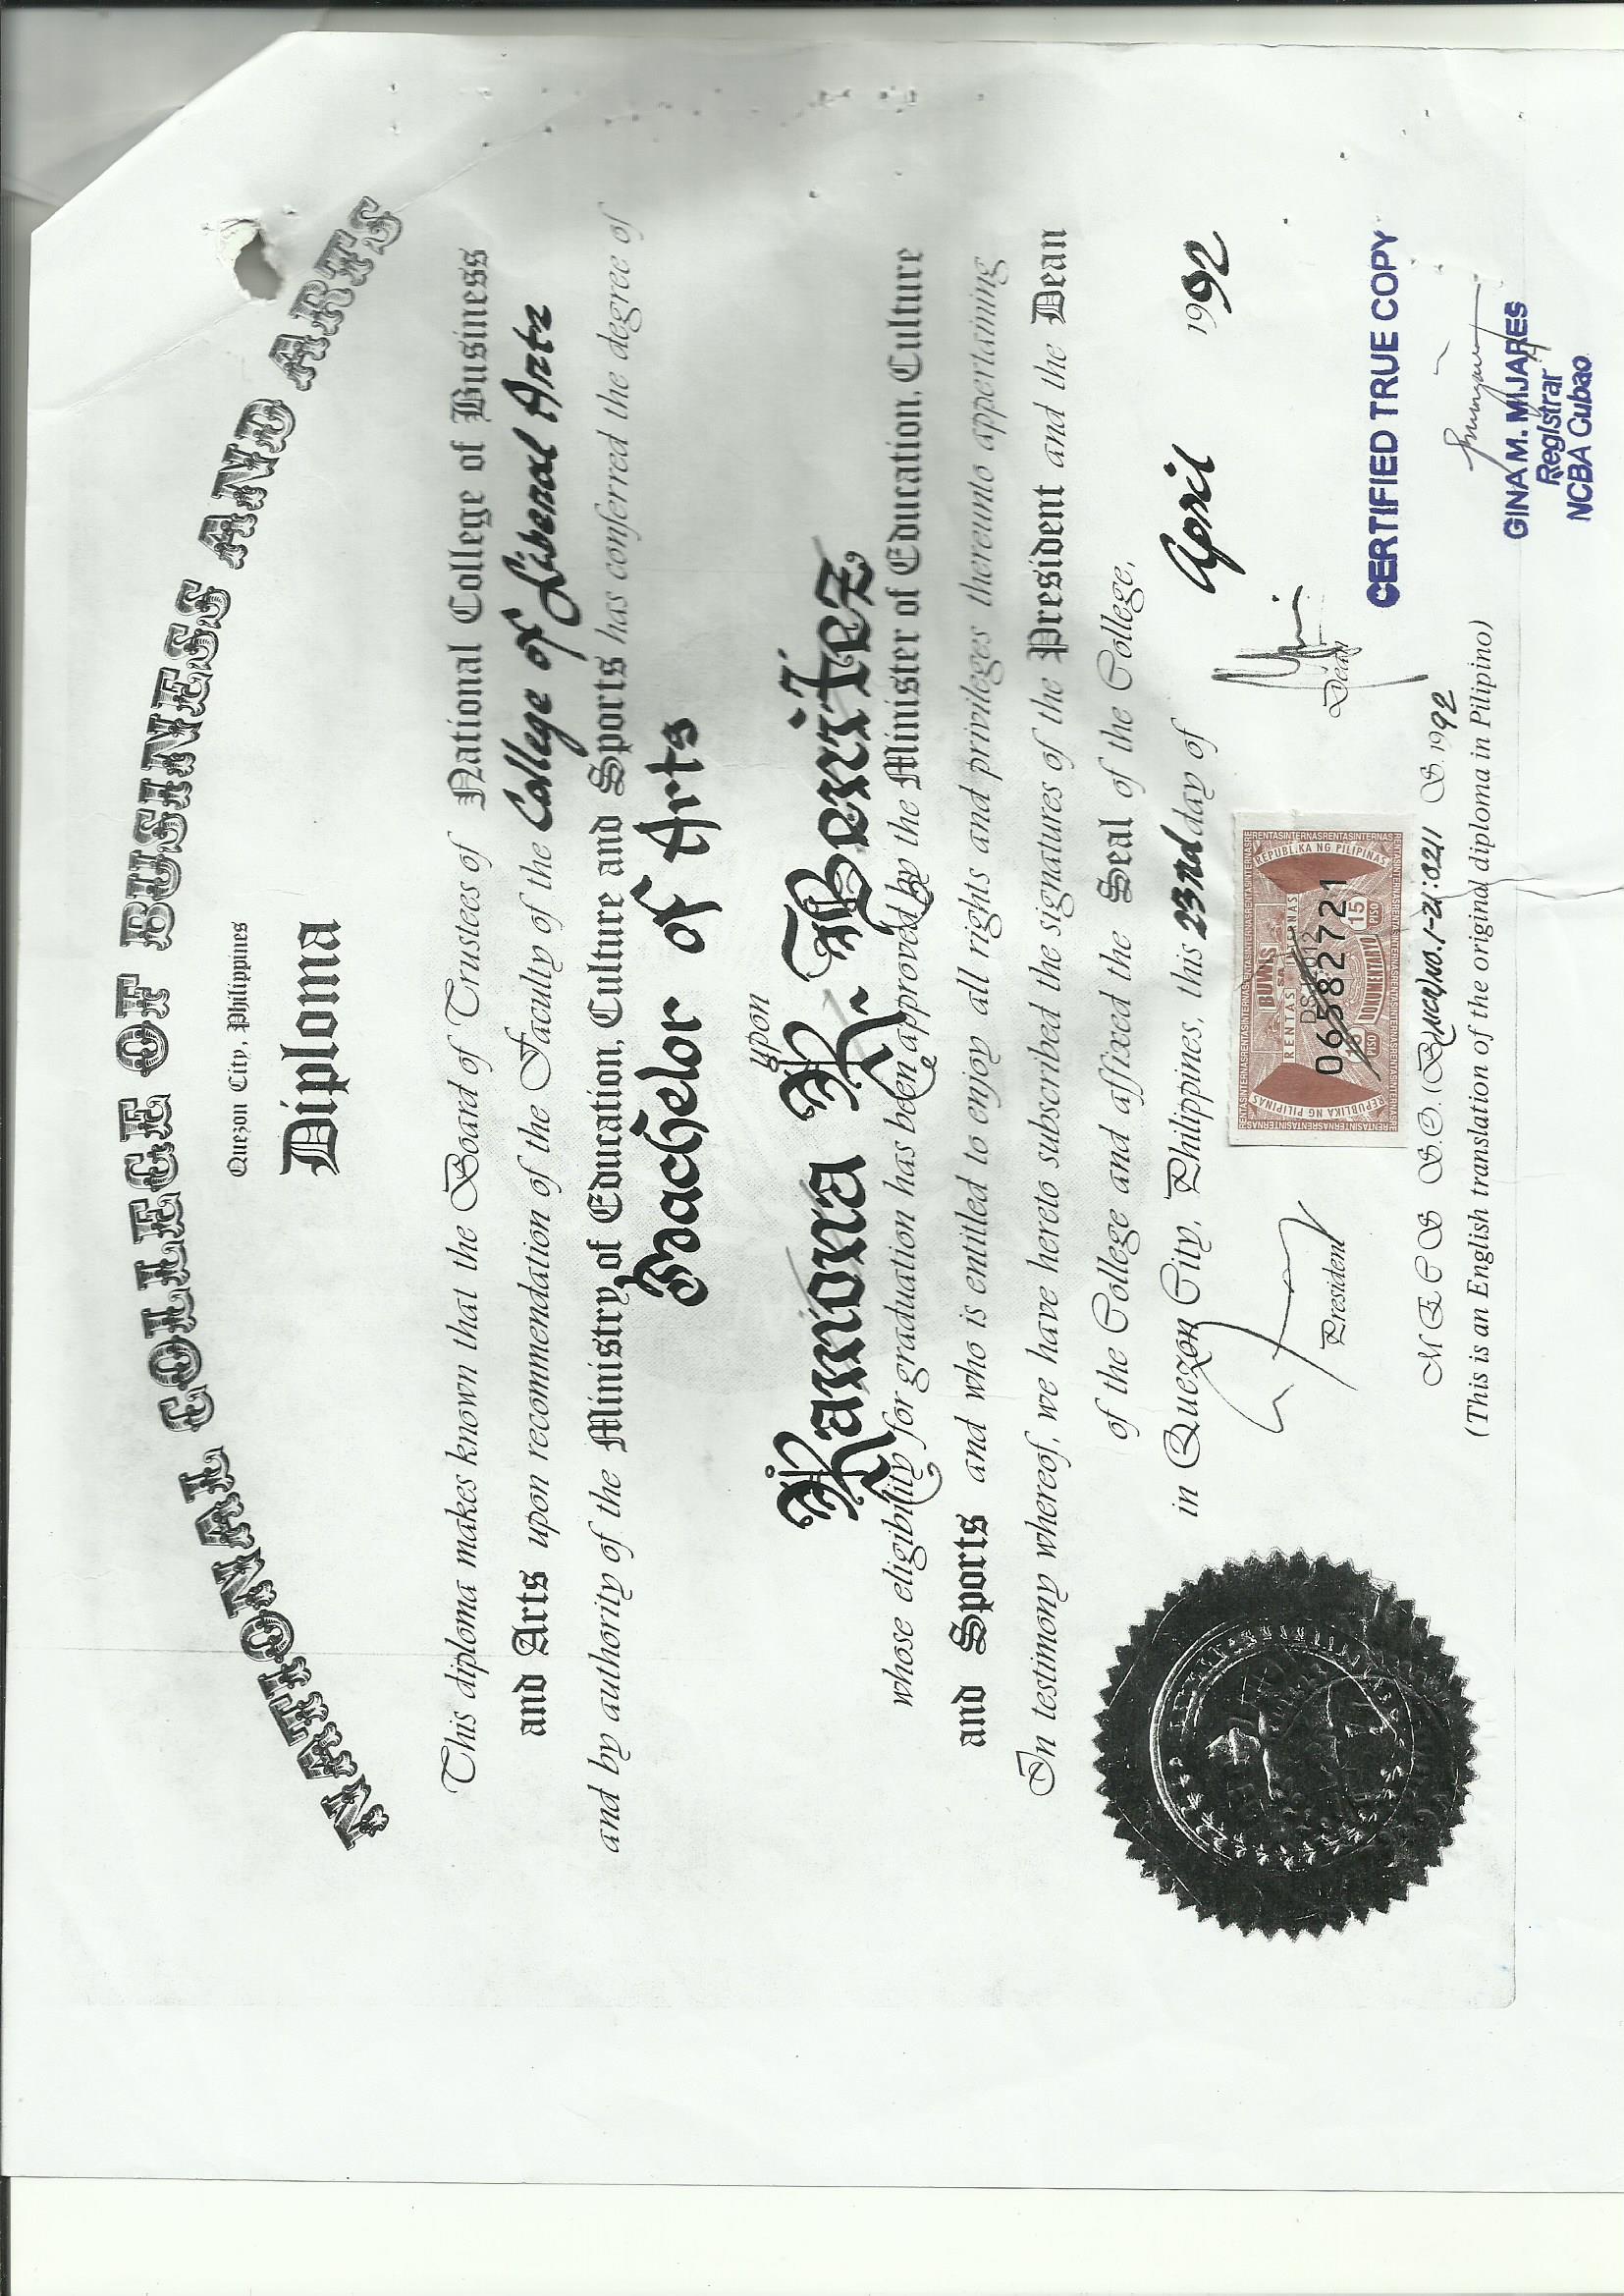 NATIONAL COLLEGE OF BUSINESS AND ARTS
Quezon City, Philippines
Diploma
This diploma makes known that the Board of Trustees of National College of Business
and Arts upon recommendation of the Faculty of the College of Liberal Arts
and by authority of the Ministry of Education, Culture and Sports has conferred the degree of
Bachelor of Arts
upon
Ramona R. Benitez
whose eligibility for graduation has been approved by the Minister of Education, Culture
and Sports and who is entitled to enjoy all rights and privileges thereunto appertaining
In testimony whereof, we have hereto subscribed the signatures of the President and the Dean
of the College and affixed the Seal of the College,
in Quezon City, Philippines, this 23rd day of April 1992
President
Dean
REPUBLIKA NG PILIPINAS
REPUBLIKA NG PILIPINAS
BUWIS SA
RENTAS INTERNAS
DS 2012
065827721
15 PISO DOKUMENTARYO 15 PISO
MECS S.O. (B) No. 1-21:0211 S. 1992
(This is an English translation of the original diploma in Pilipino)
CERTIFIED TRUE COPY
GINA M. MIJARES
Registrar
NCBA Cubao